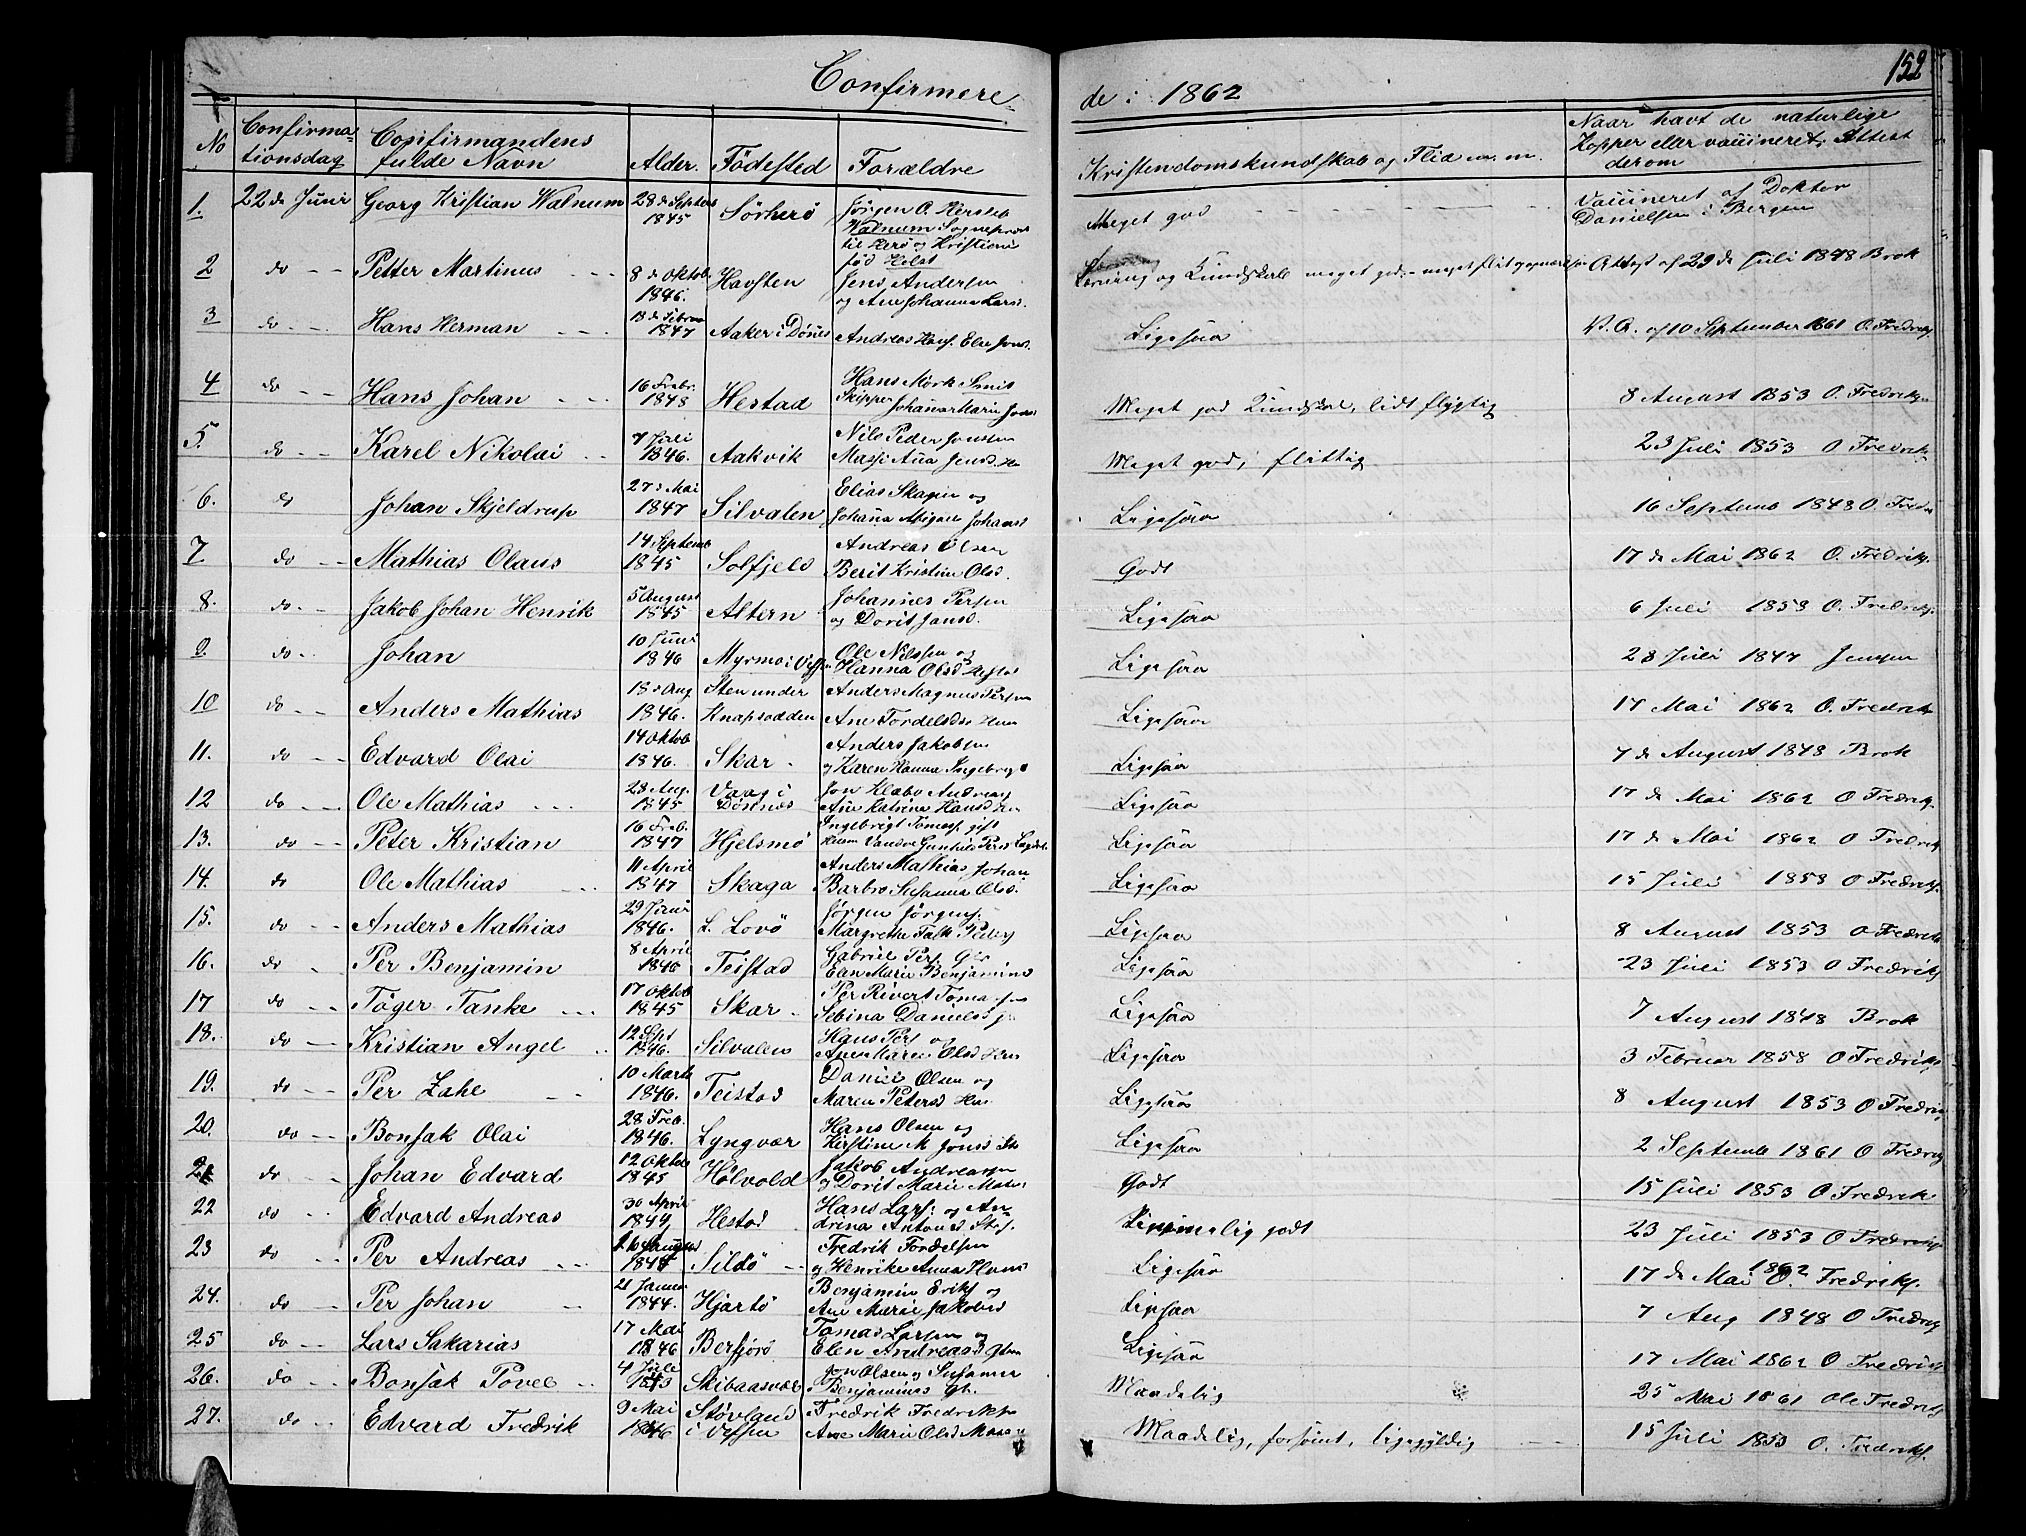 152
Confirmere
de i 1862
No Confirma=tionsdag Confirmandens fulde Navn Alder. Födested Forældre Kristendomskundskab og Flid m. m. Naar havt de naturlige Kopper eller vaccineret, Attest derom
1. 22 de Juni Georg Kristian Walnum 28 de Septbr 1845 Sörherö Jörgen O. Walnum Sognepræst til Herö og Kristiane fød Meget god Vaccineret af Doktor Danielsen i Bergen
2 do Petter Martinus 8 de Oktob 1846. Havsten Jens Andersen og Ane Johanna Lars. og Kundskab meget god Attest af 29 de Juli 1848 Brok
3 do Hans Herman 13 de Febru 1847 Aaker i Dönnes Andreas Hans. Elen Jens. Ligesaa V. A. af 10 September 1861 O. Fredriks.
4 do Hans Johan 16 Frebr. 1848 Hestad Hans Mörk Smit Skipper Johana Marie Jons Meget god Kundskab, lidt flygtig 8 August 1853 O. Fredriks.
5. do Karel Nikolai 7 Juli 1846. Aakvik Nils Peder Jensen Anna Jensd. Meget god, flittig 23 Juli 1853 O Fredriks
6. do Johan Skjeldrup 27 Mai 1847 Silvalen Elias Skagen og Johana Johansd Ligesaa 16 Septemb 1848 O. Fredr
7 do Mathias Olaus 14 Septemb 1845 Solfjeld Andreas Olsen Berit Kristine Olsd. Godt 17 de Mai 1862 O. Fredriks.
8. do. Jakob Johan Henrik 5 August 1845 Altern Johannes Persen og Dorit Jansd. Ligesaa 6 Juli 1858 O. Fredriks.
9. do. Johan 10 Juni 1846 Myrmo i Vefsn Ole Nilssen og Hanna Olsd Ligesaa 28 Juli 1847 Jensen
10 do Anders Mathias 18 Aug 1846. Sten under Knapsodden Anders Magnus Persen Ane Tordelsd Ligesaa 17 Mai 1862 O. Fredrik
11. do Edvard Olai 14 Oktob 1846. Skar Anders Jakobsen og Karen Hanna Ingebrigt Ligesaa 7 de August 1848 Brok
12 do Ole Mathias 28 Aug. 1845 Vaag i Dönnes Jon Andreas Ane Katrina Hansd Ligesaa 17 de Mai 1862 O Fredriks.
13. do Peter Kristian 16 Freb. 1847 Hjelsmö Ingebrigt Tomes. gift Gunhild Persd Ligesaa 17 de Mai 1862 O Fredrik
14. do Ole Mathias 11 April 1847 Skaga Anders Mathias Johan Barbro Susanna Olsd. Ligesaa 15 Juli 1858 O Fredriks.
15. do Anders Mathias 29 Juni 1846. L. Lovö Jörgen Jörgens. Margrethe Falk Peders Ligesaa 8 August 1853 O Fredrik
16. do Per Benjamin 8 April 1846 Teistad Gabriel Pers. Elen Marie Benjamins Ligesaa 23 Juli 1853 O Fredriks
17 do Töger Tanke 17 Oktob 1845 Skar Per Rivert Toma Sebina Daniels Ligesaa 7 August 1848 Brok
18. do Kristian Angel 12 Sept 1846. Silvalen Hans Pers og Ane Maren Olsd Ligesaa 3 Februar 1858 O Fredriks
19. do Per Zahe 10 Marts 1846. Teistad Daniel Olsen og Maren Petersd Ligesaa 8 August 1853 O Fredriks
20. do Bonsak Olai 28 Freb. 1846. Lyngvær Hans Olsen og Kirstine M Jonsd Ligesaa 2 Septemb 1861 O Fredriks
21 do Johan Edvard 12 Oktob 1845 Hölvold Jakob Andreassen og Dorit Marie Godt 15 Juli 1853 O Fredrik.
22 do Edvard Andreas 30 April 1844 Hestad Hans Lars: og Andrina Antonsd Temmelig godt 23 Juli 1853 O Fredriks.
23 do Per Andreas Sildö Fredrik Tordelsen og Henrike Anna Hans Ligesaa 17 de Mai 1862 O. Fredriks.
24. do Per Johan 21 Januar 1844. Hjartö Benjamin Eriks og Ane Marie Jakobsd Ligesaa 7 Aug 1848 O Fredriks
25 do Lars Sakarias 17 Mai 1846 Berfjord Tomas Larsen og Elen Andreasd Ligesaa 17 Mai 1862 O Fredriks
26. do Bonsak Povel 4 Jule Skibaasvæe Jon Olsen og Susanne Benjamins Maadelig 25 Mai 1861 Ole Fredriks
27. do Edvard Fredrik 9 Mai 1846 Stövland i Vefsen Fredrik Fredriks Ane Marie Olsd Maadelig, forsömt, ligegyldig 15 Juli 1853 O. Fredriks.